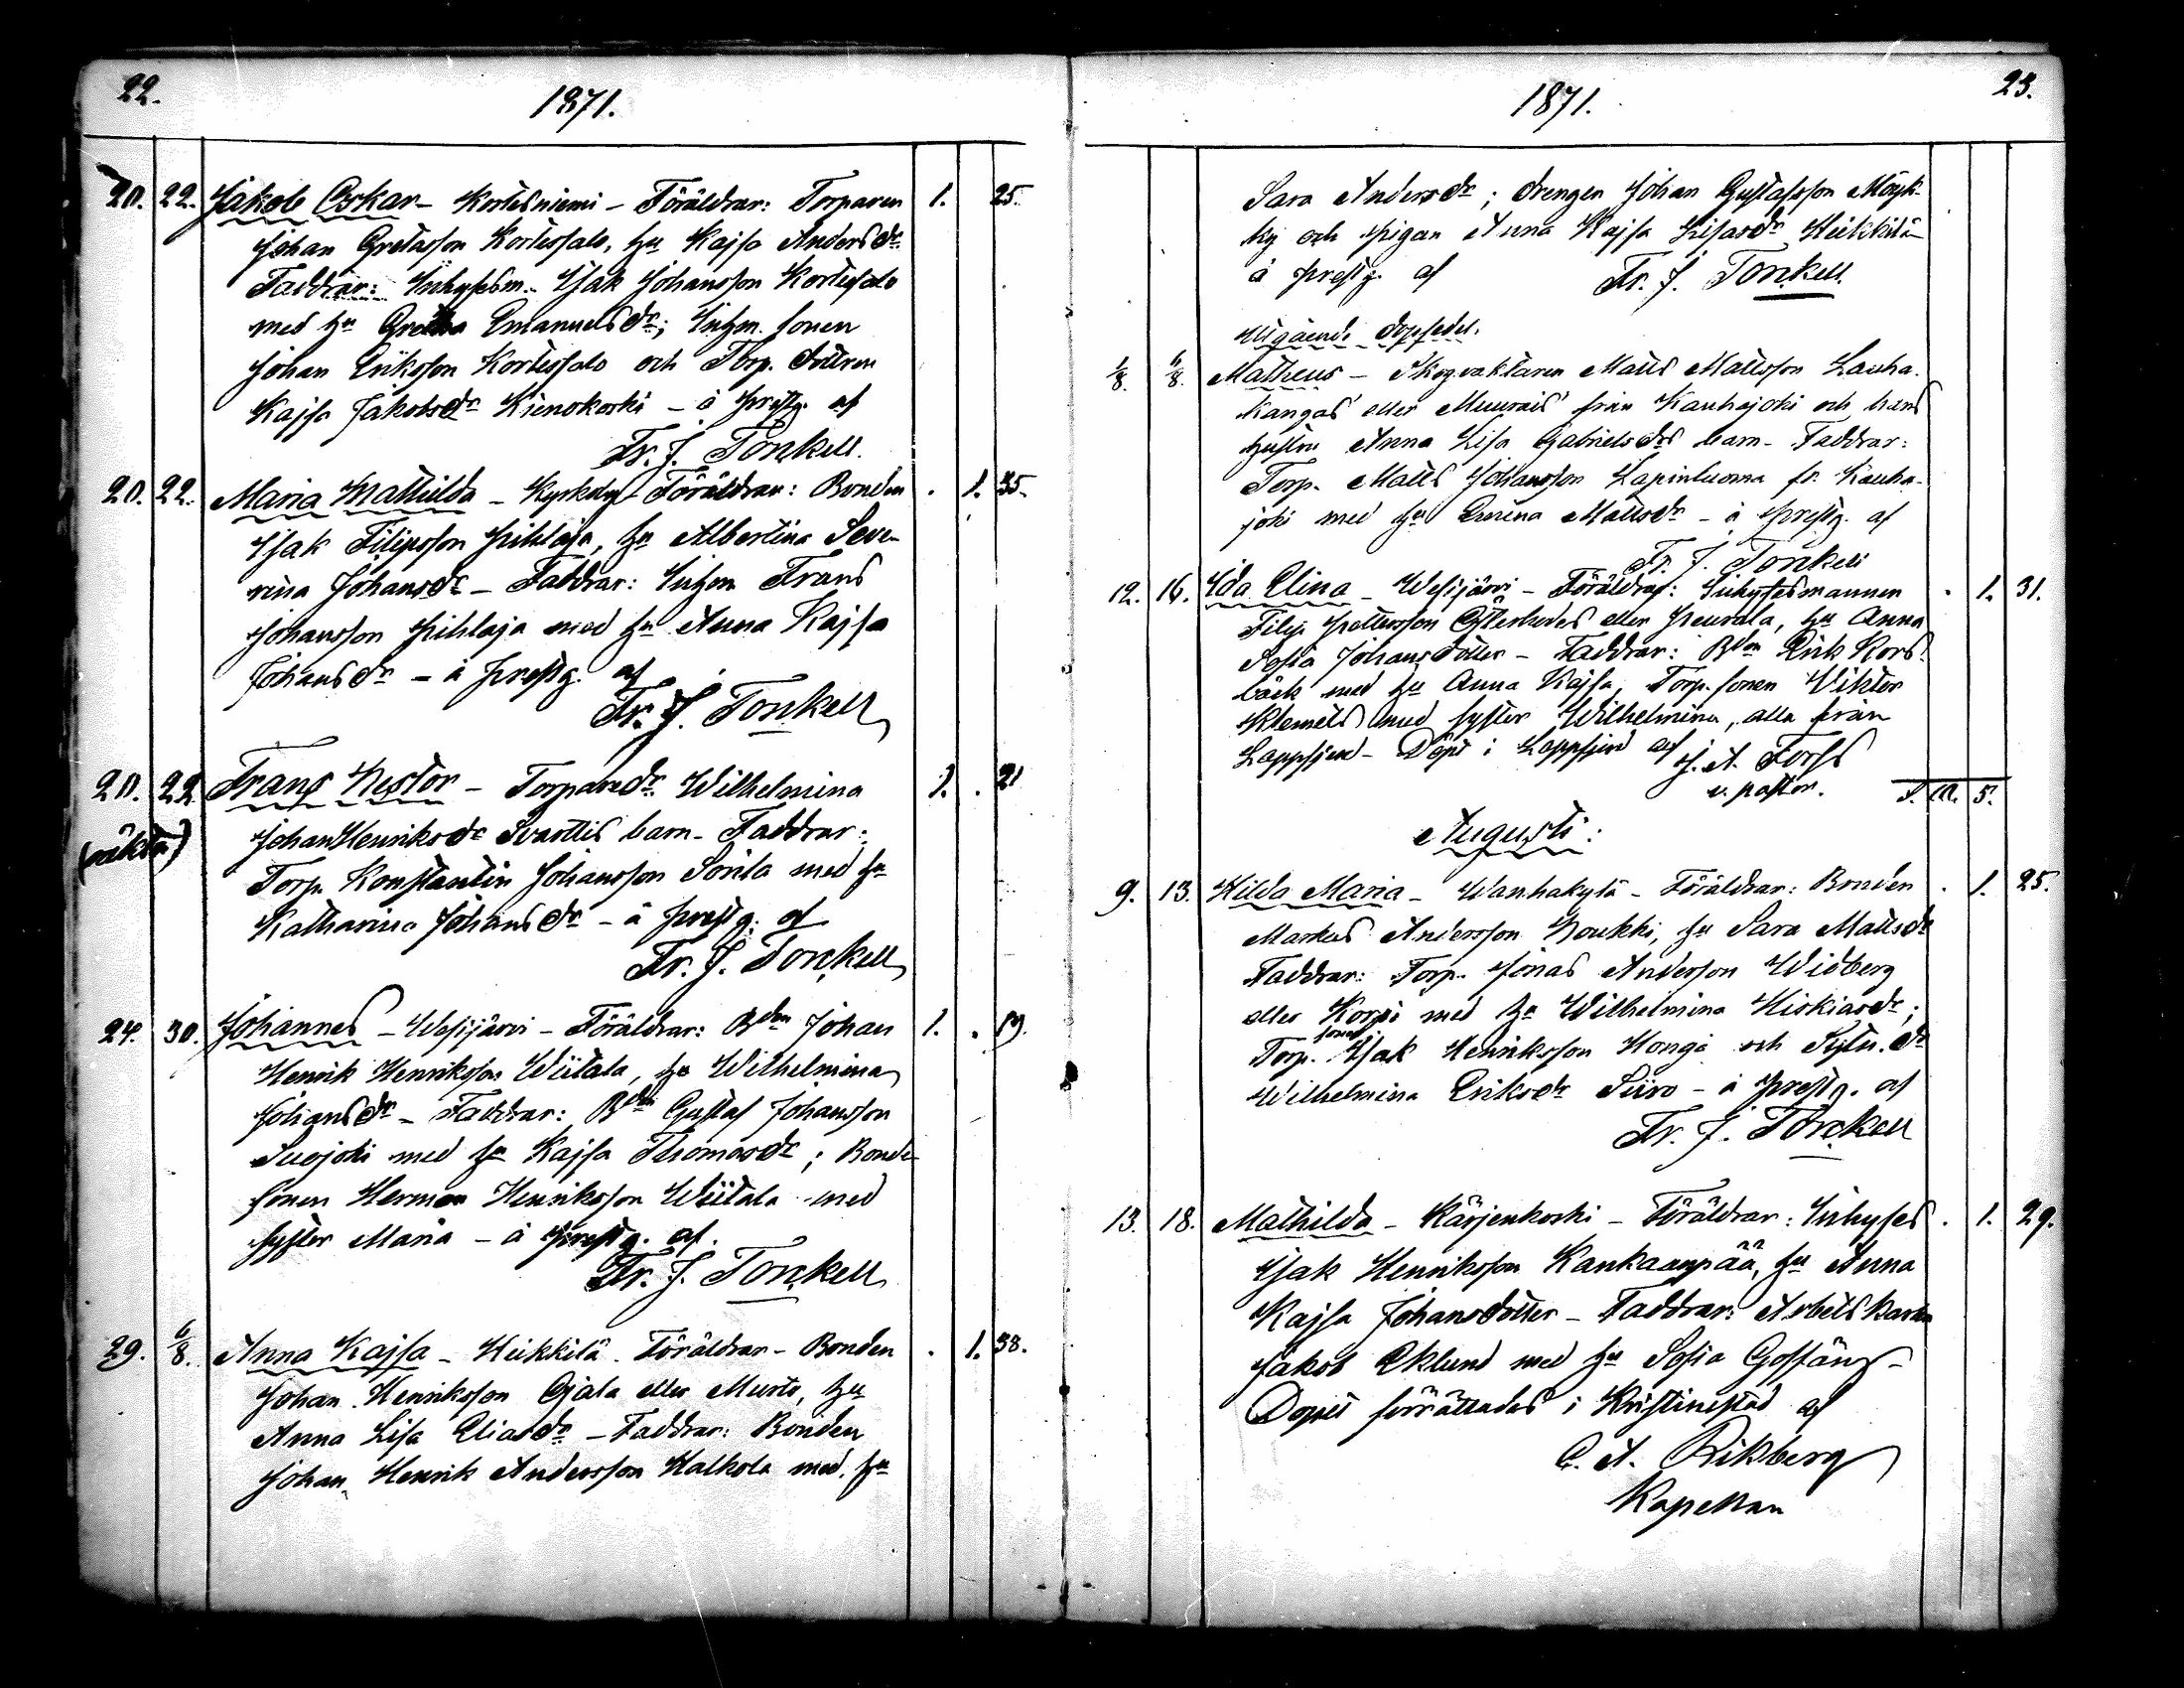 22.
1871.
20. 22. Jakob Oskar – Kortesniemi – Föräldrar: Torparen 1. 25.
Johan Gretasson Kortessalo, hu Kajsa Andersdr
Faddrar: Inhysesm. Isak Johansson Kortesalo
med hu Emanuelsdr; Inhm. sonen
Johan Eriksson Kortessalo och Torp. dottren
Kajsa Jakobsdr – å prestg. af
Fr. J. Tonkell.
20. 22. Maria Mathilda – – Föräldrar: Bonden . 1. 35.
Isak Filipsson Pihlaja, hu Albertina Seve-
rina Johansdr – Faddrar: Inhm Frans
Johansson Pihlaja med hu Anna Kajsa
Johansdr – å prestg. af
Fr. J. Tonkell
20. 22. Frans Nestor – Torparedr Wilhelmina 1. . 21
(oäkta) Johan Henriksdr Svarttis barn – Faddrar:
Torp. Konstantin Johansson Sorila med hu
Katharina Johansdr – å prestg. af
Fr. J. Tonkell
24. 30. Johannes – Wesijärvi – Föräldrar: Bden Johan 1. . 19.
Henrik Henriksson Wiitala, hu Wilhelmina
Johansdr – Faddrar: Bden Gustaf Johansson
Suojoki med hu Kajsa Thomasdr; Bonde-
sonen Herman Henriksson Wiitala med
syster Maria – å prestg. af.
Fr. J. Tonkell
29. 6/8. Anna Kajsa – Heikkilä. Föräldrar – Bonden . 1. 38.
Johan Henriksson Ojala eller Musto, hu
Anna Lisa Eliasdr – Faddrar: Bonden
Johan Henrik Andersson Halkola med hu
23.
1871.
Sara Andersdr; drengen Johan Gustafsson Möyk-
ky och pigan Anna Kajsa Lisasdr Heikkilä –
å prestg. af Fr. J. Tonkell.
Utgående dopsedel.
1/8. 6/8. Matheus – Skogvaktaren Matts Mattsson Lauha-
kangas eller från Kauhajoki och hans
hustru Anna Lisa Gabrielsdrs barn – Faddrar:
Torp. Matts Johansson Lapinluoma fr. Kauha-
joki med hu Mattsdr – å prestg. af
Fr. J. Tonkell
12. 16. Ida Elina – Wesijärvi – Föräldrar: Inhysesmannen . 1. 31.
Filip Pettersson eller Peurala, hu Anna
Sofia Johansdotter – Faddrar: Bden Erik Kors-
bäck med hu Anna Kajsa, Torp. sonen Viktor
Klemets med syster Wilhelmina, alla från
Lappfjerd – Döpt i Lappfjerd af J. A. Forss
v. pastor. 5. 10. 5.
Augusti:
9. 13. Hilda Maria – Wanhakylä – Föräldrar: Bonden . 1. 25.
Markus Andersson Koukki, hu Sara Mattsdr
Faddrar: Torp. Jonas Andersson Widberg
eller Korpi med hu Wilhelmina Hiskiasdr;
Torp. sonen Isak Henriksson Honga och dr
Wilhelmina Eriksdr Siiro – å prestg. af
Fr. J. Tonkell
13. 18. Mathilda – Kärjenkoski – Föräldrar: Inhyses . 1. 29.
Isak Henriksson Kankaanpää, hu Anna
Kajsa Johansdotter – Faddrar: Arbetskarlen
Jakob Eklund med hu Sofia
Dopet förrättades i Kristinestad af
C. A. Rikberg
Kapellan